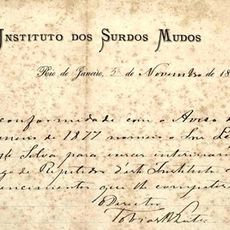 INSTITUTO DOS SURDOS MUDOS
Rio de Janeiro, 5 de Novembro de 18
conformidade com o Aviso
de 1877 nomeio o Snr
Silva para exercer interinamente
de Repetidor deste Instituto
vencimentos que lhe
O Director
Tobias Leite